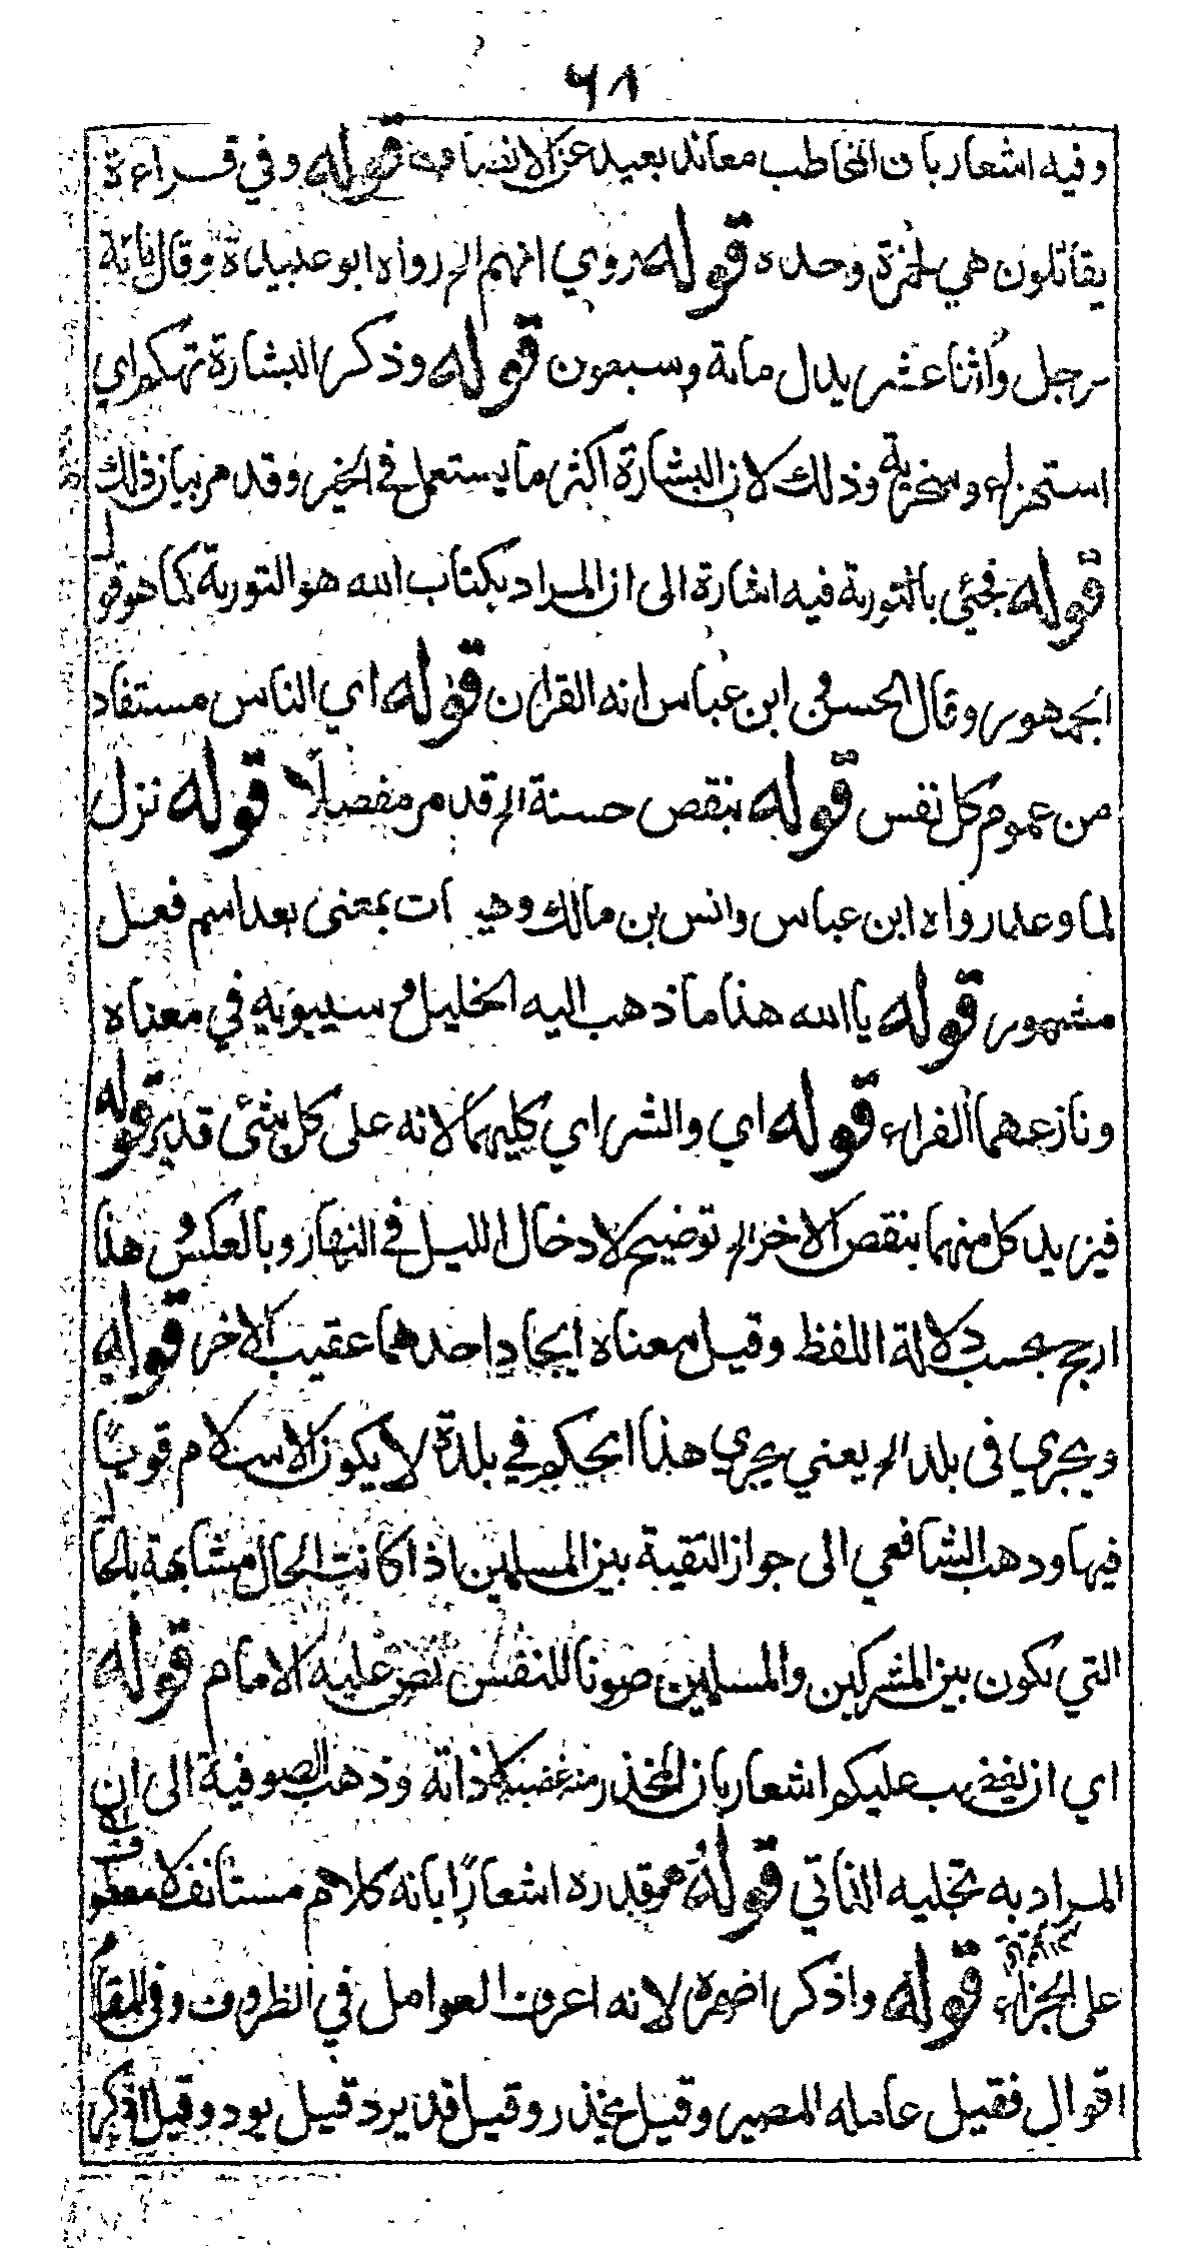 ٦٨
وفيه اشعار بان المخاطب معاند بعيد عن الانصاف قوله وفي قراءة
يقاتلون هي لحمزة وحده قوله روي انهم الخ رواه ابو عبيدة وقال مائة
رجل واثنا عشر بدل مائة وسبعون قوله وذكر البشارة تهكم اي
استهزاء وسخرية وذلك لان البشارة اكثر ما يستعمل في الخير وقد مر بيان ذلك
قوله فجيئ بالتورية فيه اشارة الى ان المراد بكتاب الله هو التورية كما هو قول
الجمهور وقال الحسن ابن عباس انه القران قوله اي الناس مستفاد
من عموم كل نفس قوله بنقص حسنة الخ قد مر مفصلًا قوله نزل
لما وعد رواه ابن عباس وانس بن مالك وهيهات بمعنى بعد اسم فعل
مشهور قوله يا الله هذا ما ذهب اليه الخليل و سيبويه في معناه
ونازعهما الفراء قوله اي والشر اي كليهما لانه على كل شئ قدير قوله
فيزيد كل منهما بنقص الاخر الخ توضيح لادخال الليل في النهار وبالعكس وهذا
ارجح بحسب دلالة اللفظ وقيل معناه ايجاد احدهما عقيب الاخر قوله
ويجري في بلد الخ يعني يجري هذا الحكم في بلدة لا يكون الاسلام قويًا
فيها وذهب الشافعي الى جواز التقية بين المسلمين اذا كانت الحال مشابهة بالحال
التي يكون بين المشركين والمسلمين صونا للنفس نص عليه الامام قوله
اي ان يغضب عليكم اشعار بان المحذر منه غضبه لا ذاته وذهب الصوفية الى ان
المراد به تجليه الذاتي قوله قدره اشعارًا بانه كلام مستانف لا معطوف
على الجزاء قوله واذكر اضمره لانه اعرف العوامل في الظروف وفي المقام
اقوال فقيل عامله المصير وقيل يحذر وقيل قدير وقيل يود وقيل اذكر